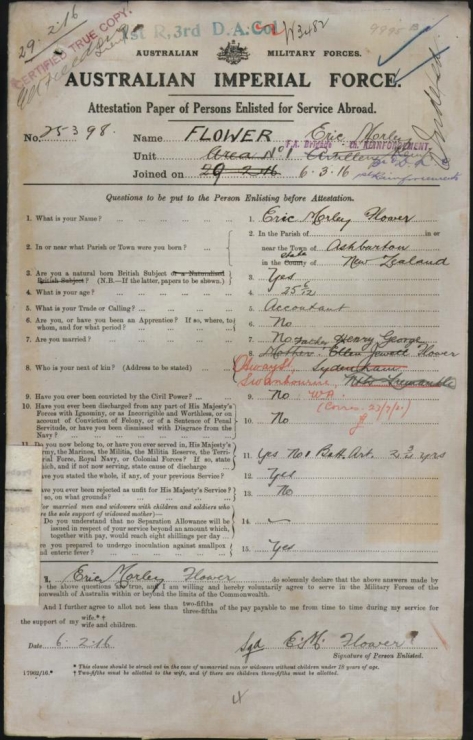 29.2.16
CERTIFIED TRUE COPY.
1st R, 3rd D.A.Col
AUSTRALIAN MILITARY FORCES.
AUSTRALIAN IMPERIAL FORCE.
Attestation Paper of Persons Enlisted for Service Abroad.
No. 25398. Name FLOWER Eric Morley
Unit Area No 1 Artillery F.A. Brigade REINFORCEMENT.
Joined on 29 2 16 6.3.16 Reinforcements
Questions to be put to the Person Enlisting before Attestation.
1. What is your Name? 1. Eric Morley Flower
2. In or near what Parish or Town were you born? 2. In the Parish of in or
near the Town of Ashburton
in the County of State New Zealand
3. Are you a natural born British Subject or a Naturalised British Subject? (N.B.—If the latter, papers to be shewn.) 3. Yes
4. What is your age? 4. 25
5. What is your Trade or Calling? 5. Accountant
6. Are you, or have you been an Apprentice? If so, where, to whom, and for what period? 6. No
7. Are you married? 7. No
8. Who is your next of kin? (Address to be stated) 8. Father Henry George
Mother Ellen Flower
Sydenham
Swanbourne,
W.A.
9. Have you ever been convicted by the Civil Power? 9. No
10. Have you ever been discharged from any part of His Majesty's Forces with Ignominy, or as Incorrigible and Worthless, or on account of Conviction of Felony, or of a Sentence of Penal Servitude, or have you been dismissed with Disgrace from the Navy? 10. No
11. Do you now belong to, or have you ever served in, His Majesty's Army, the Marines, the Militia, the Militia Reserve, the Territorial Force, Royal Navy, or Colonial Forces? If so, state which, and if not now serving, state cause of discharge 11. Yes No 1 Art. yrs
Have you stated the whole, if any, of your previous Service? 12. Yes
Have you ever been rejected as unfit for His Majesty's Service? If so, on what grounds? 13. No
For married men and widowers with children and soldiers who are the sole support of widowed mother—
Do you understand that no Separation Allowance will be issued in respect of your service beyond an amount which, together with pay, would reach eight shillings per day 14.
Are you prepared to undergo inoculation against smallpox and enteric fever? 15. Yes
I, Eric Morley Flower do solemnly declare that the above answers made by
me to the above questions are true, and I am willing and hereby voluntarily agree to serve in the Military Forces of the
Commonwealth of Australia within or beyond the limits of the Commonwealth.
And I further agree to allot not less than two-fifths three-fifths of the pay payable to me from time to time during my service for
the support of my wife.*† wife and children.
Date 6.2.16 Sgd E.M. Flower
Signature of Person Enlisted.
* This clause should be struck out in the case of unmarried men or widowers without children under 18 years of age.
† Two-fifths must be allotted to the wife, and if there are children three-fifths must be allotted.